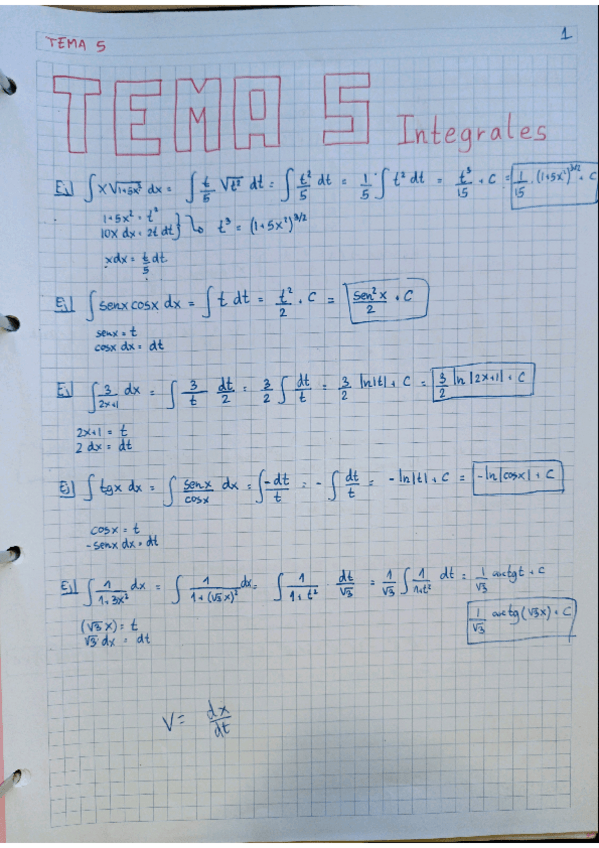 TEMA 5 1
TEMA 5 Integrales
Ej ∫ x√1+5x² dx = ∫ t/5 √t² dt = ∫ t²/5 dt = 1/5 ∫ t² dt = t³/15 + C = 1/15 (1+5x²)^3/2 + C
1+5x² = t²
10x dx = 2t dt } ↳ t³ = (1+5x²)^3/2
x dx = t/5 dt
Ej ∫ senx cosx dx = ∫ t dt = t²/2 + C = sen²x/2 + C
senx = t
cosx dx = dt
Ej ∫ 3/2x+1 dx = ∫ 3/t dt/2 = 3/2 ∫ dt/t = 3/2 ln|t| + C = 3/2 ln|2x+1| + C
2x+1 = t
2 dx = dt
Ej ∫ tgx dx = ∫ senx/cosx dx = ∫ -dt/t = - ∫ dt/t = - ln|t| + C = -ln|cosx| + C
cosx = t
-senx dx = dt
Ej ∫ 1/1+3x² dx = ∫ 1/1+(√3x)² dx = ∫ 1/1+t² dt/√3 = 1/√3 ∫ 1/1+t² dt = 1/√3 arctgt + C
(√3x) = t
√3 dx = dt
1/√3 arctg(√3x) + C
V = dx/dt